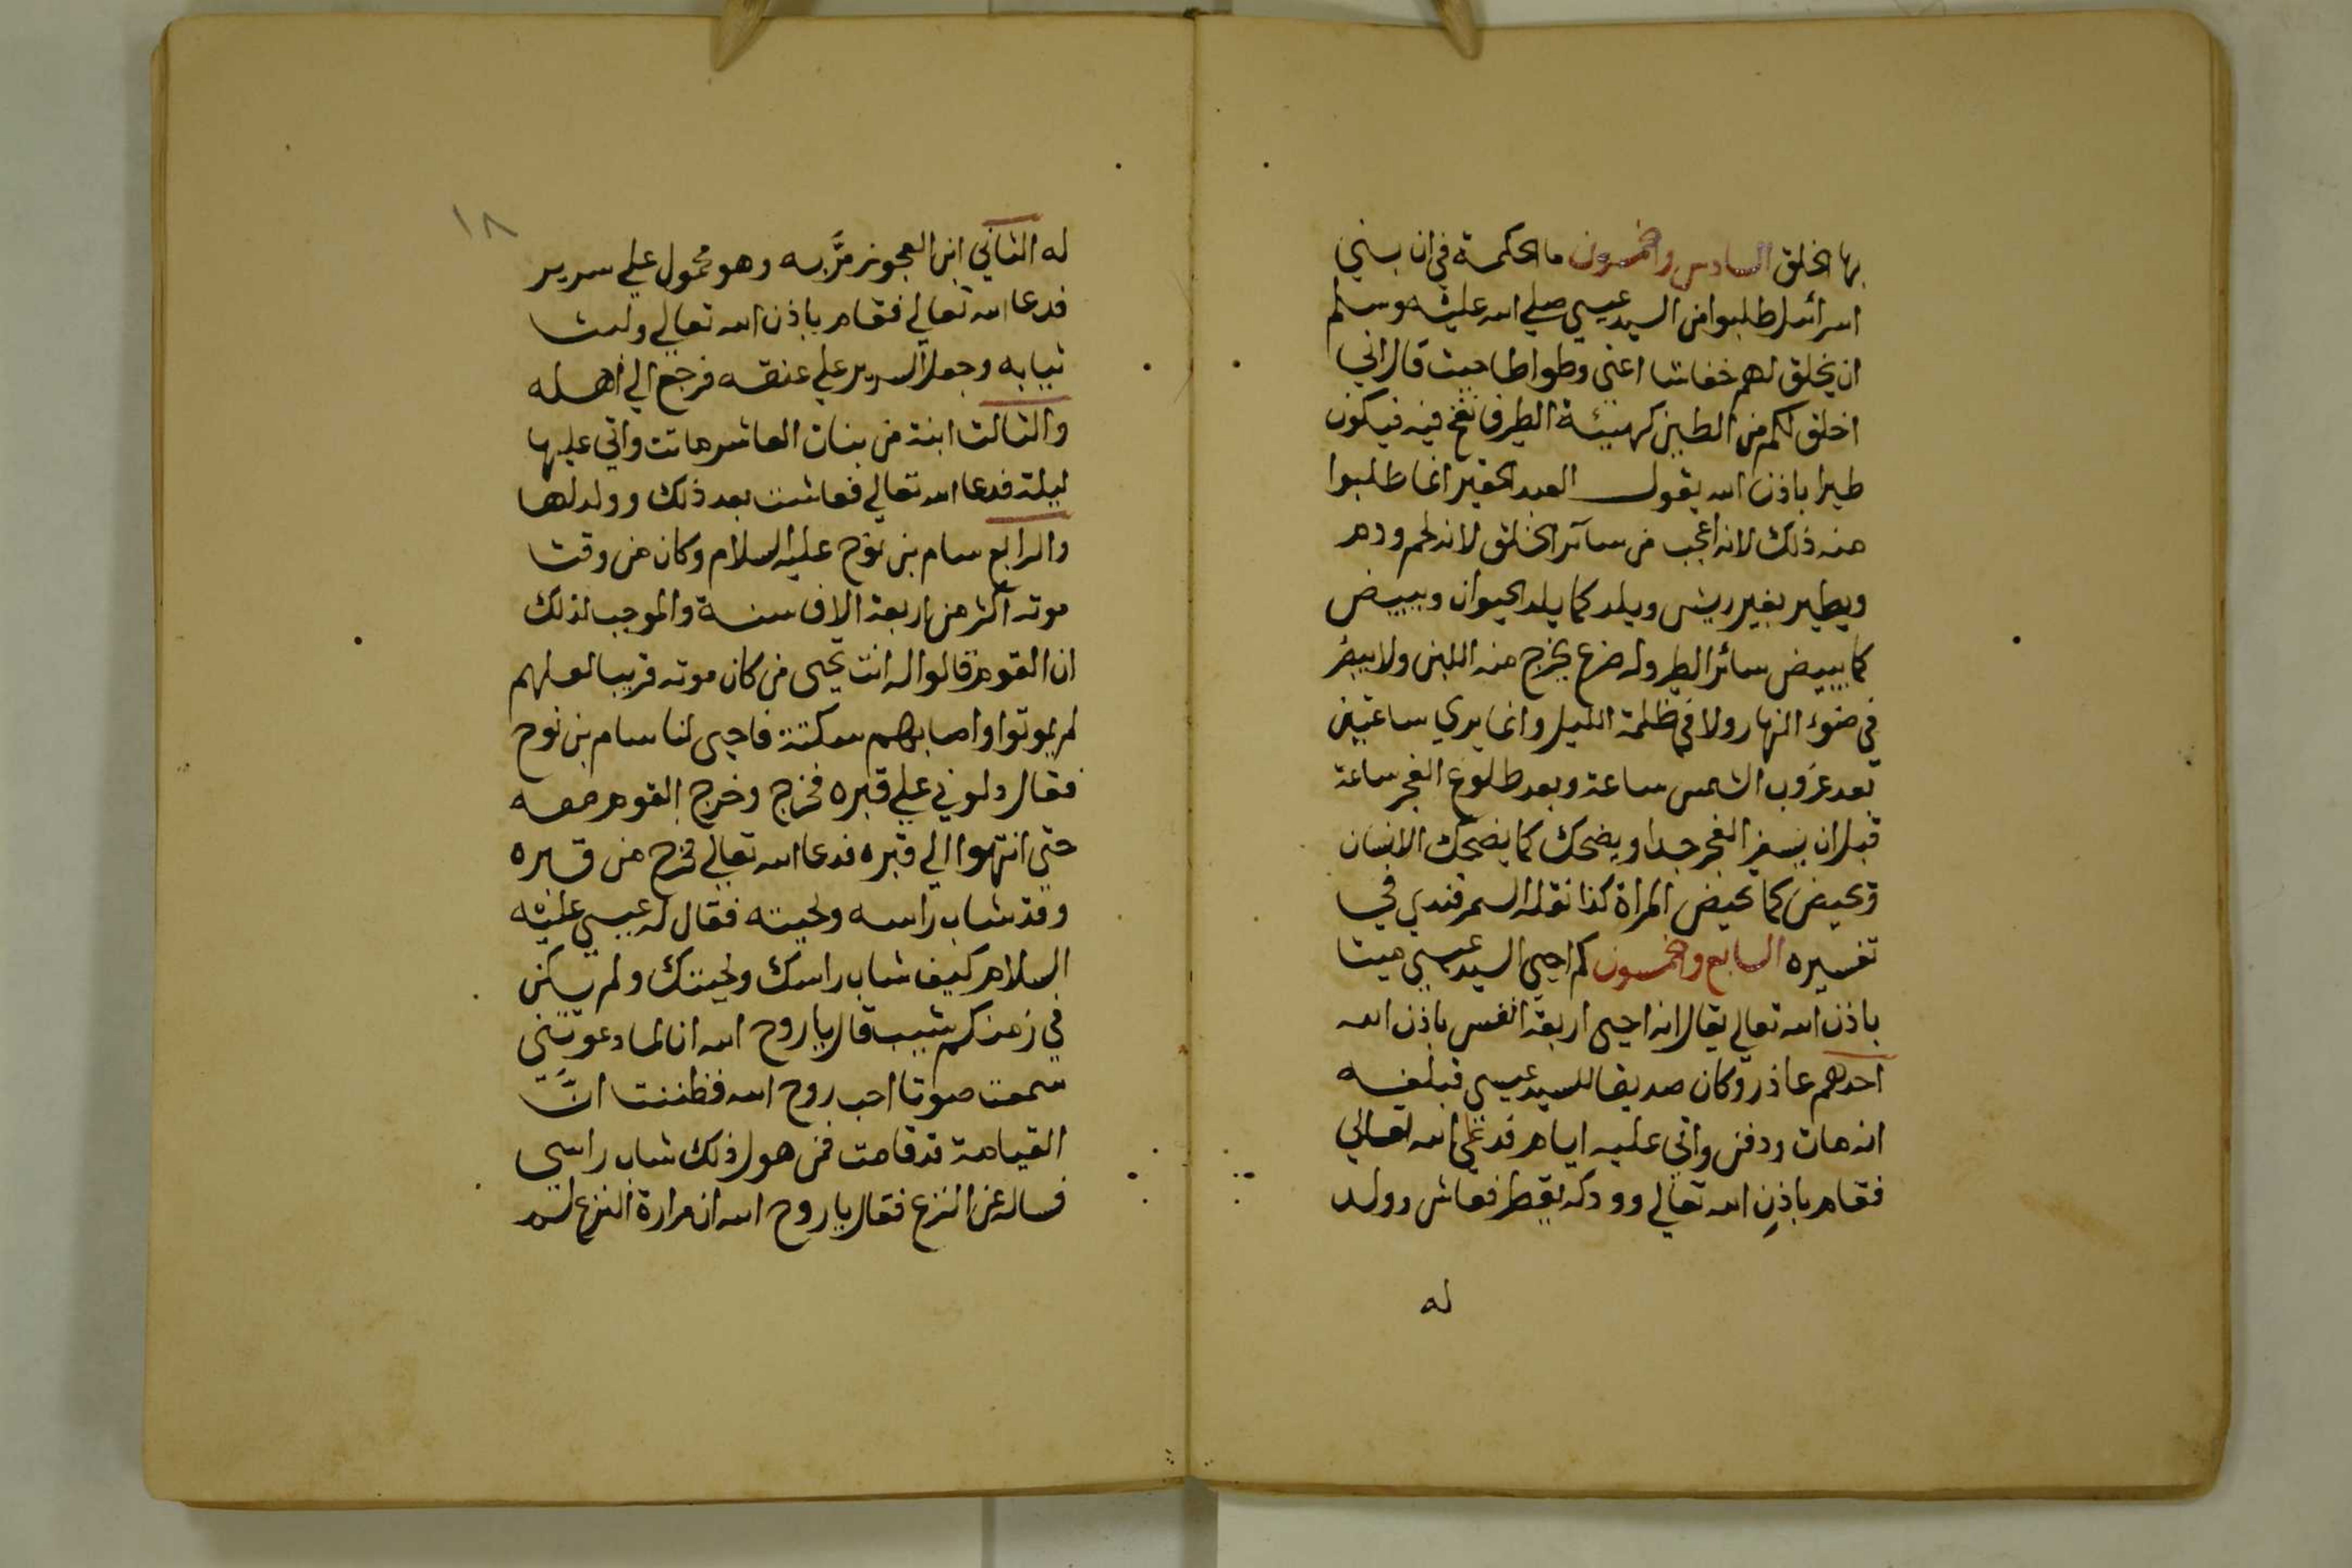 بها الخلق السادس والخمسون ما الحكمة في ان بني
اسرائيل طلبوا من السيد عيسي صلي الله عليه وسلم
ان يخلق لهم خفاشا اعني وطواطا حيث قال اني
اخلق لكم من الطين كهيئة الطير فانفخ فيه فيكون
طيرا باذن الله يقول العبد الحقير انما طلبوا
منه ذلك لانه اعجب من سآئر الخلق لانه لحم ودم
ويطير بغير ريش ويلد كما يلد الحيوان ويبيض
كما يبيض سائر الطير وله ضرع يخرج منه اللبن ولا يبصر
في ضوء النهار ولا في ظلمة الليل وانما يري ساعتين
بعد غروب الشمس ساعة وبعد طلوع الفجر ساعة
قبل ان يسفر الفجر جدا ويضحك كما يضحك الانسان
وتحيض كما تحيض المراة كذا نقله السمرقندي في
تفسيره السابع والخمسون كم احيي السيد عيسي ميتا
باذن الله تعالي يقال انه احيي اربعة انفس باذن الله
احدهم عاذر وكان صديقا للسيد عيسي فبلغه
انه مات ودفن واتي عليه ايام فدعي الله تعالي
فقام باذن الله تعالي وودكه يقطر فعاش وولد
له
١٨
له الثاني ابن العجوز مرَّ به وهو محمول علي سرير
فدعا الله تعالي فقام باذن الله تعالي ولبث
ثيابه وجعل السرير علي عنقه فرجع الي اهله
والثالث ابنة من بنات العاشر ماتت واتي عليها
ليلة فدعا الله تعالي فعاشت بعد ذلك وولد لها
والرابع سام بن نوح عليه السلام وكان من وقت
موته اكثر من اربعة الاف سنة والموجب لذلك
ان القوم قالوا له انت تحيي من كان موته قريبا لعلهم
لم يموتوا واصابهم سكتة فاحيي لنا سام بن نوح
فقال دلوني علي قبره فخرج وخرج القوم معه
حتي انتهوا الي قبره فدعا الله تعالي فخرج من قبره
وقد شاب راسه ولحيته فقال له عيسي عليه
السلام كيف شاب راسك ولحيتك ولم يكن
في زمنكم شيب قال يا روح الله انا لما دعوتني
سمعت صوتا احب روح الله فظننت انَّ
القيامة قد قامت فمن هول ذلك شاب راسي
فساله عن النزع فقال يا روح الله ان مرارة النزع لم